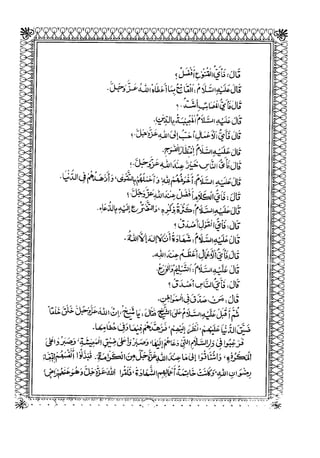 قَالَ: فَأَيُّ الْقُنُوعِ أَفْضَلُ؟
قَالَ عَلَيْهِ السَّلَامُ: الْقَانِعُ بِمَا أَعْطَاهُ اللهُ عَزَّ وَجَلَّ.
قَالَ: فَأَيُّ الْمَصَائِبِ أَشَدُّ؟
قَالَ عَلَيْهِ السَّلَامُ: الْمُصِيبَةُ بِالدِّينِ.
قَالَ: فَأَيُّ الْأَعْمَالِ أَحَبُّ إِلَى اللهِ عَزَّ وَجَلَّ؟
قَالَ عَلَيْهِ السَّلَامُ: انْتِظَارُ الْفَرَجِ.
قَالَ: فَأَيُّ النَّاسِ خَيْرٌ عِنْدَ اللهِ عَزَّ وَجَلَّ؟
قَالَ عَلَيْهِ السَّلَامُ: أَخْوَفُهُمْ لِلهِ وَأَعْمَلُهُمْ بِالتَّقْوَى وَأَزْهَدُهُمْ فِي الدُّنْيَا.
قَالَ: فَأَيُّ الْكَلَامِ أَفْضَلُ عِنْدَ اللهِ عَزَّ وَجَلَّ؟
قَالَ عَلَيْهِ السَّلَامُ: كَثْرَةُ ذِكْرِهِ وَالتَّضَرُّعُ إِلَيْهِ بِالدُّعَاءِ.
قَالَ: فَأَيُّ الْقَوْلِ أَصْدَقُ؟
قَالَ عَلَيْهِ السَّلَامُ: شَهَادَةُ أَنْ لَا إِلَهَ إِلَّا اللهُ.
قَالَ: فَأَيُّ الْأَعْمَالِ أَعْظَمُ عِنْدَ اللهِ.
قَالَ عَلَيْهِ السَّلَامُ: التَّسْلِيمُ وَالْوَرَعُ.
قَالَ: فَأَيُّ النَّاسِ أَصْدَقُ؟
قَالَ: مَنْ صَدَقَ فِي الْمَوَاطِنِ.
ثُمَّ أَقْبَلَ عَلَيْهِ السَّلَامُ عَلَى الشَّيْخِ فَقَالَ: يَا شَيْخُ، إِنَّ اللهَ عَزَّ وَجَلَّ خَلَقَ خَلْقًا
ضَيَّقَ الدُّنْيَا عَلَيْهِمْ نَظَرًا لَهُمْ فَزَهَّدَهُمْ فِيهَا وَفِي حُطَامِهَا.
فَرَغِبُوا فِي دَارِ السَّلَامِ الَّتِي دَعَاهُمْ إِلَيْهَا، وَصَبَرُوا عَلَى ضِيقِ الْمَعِيشَةِ، وَصَبَرُوا عَلَى
الْمَكْرُوهِ، وَاشْتَاقُوا إِلَى مَا عِنْدَ اللهِ عَزَّ وَجَلَّ مِنَ الْكَرَامَةِ، فَبَذَلُوا أَنْفُسَهُمُ ابْتِغَاءَ
رِضْوَانِ اللهِ، وَكَانَتْ خَاتِمَةُ أَعْمَالِهِمُ الشَّهَادَةَ، فَلَقُوا اللهَ عَزَّ وَجَلَّ وَهُوَ عَنْهُمْ رَاضٍ